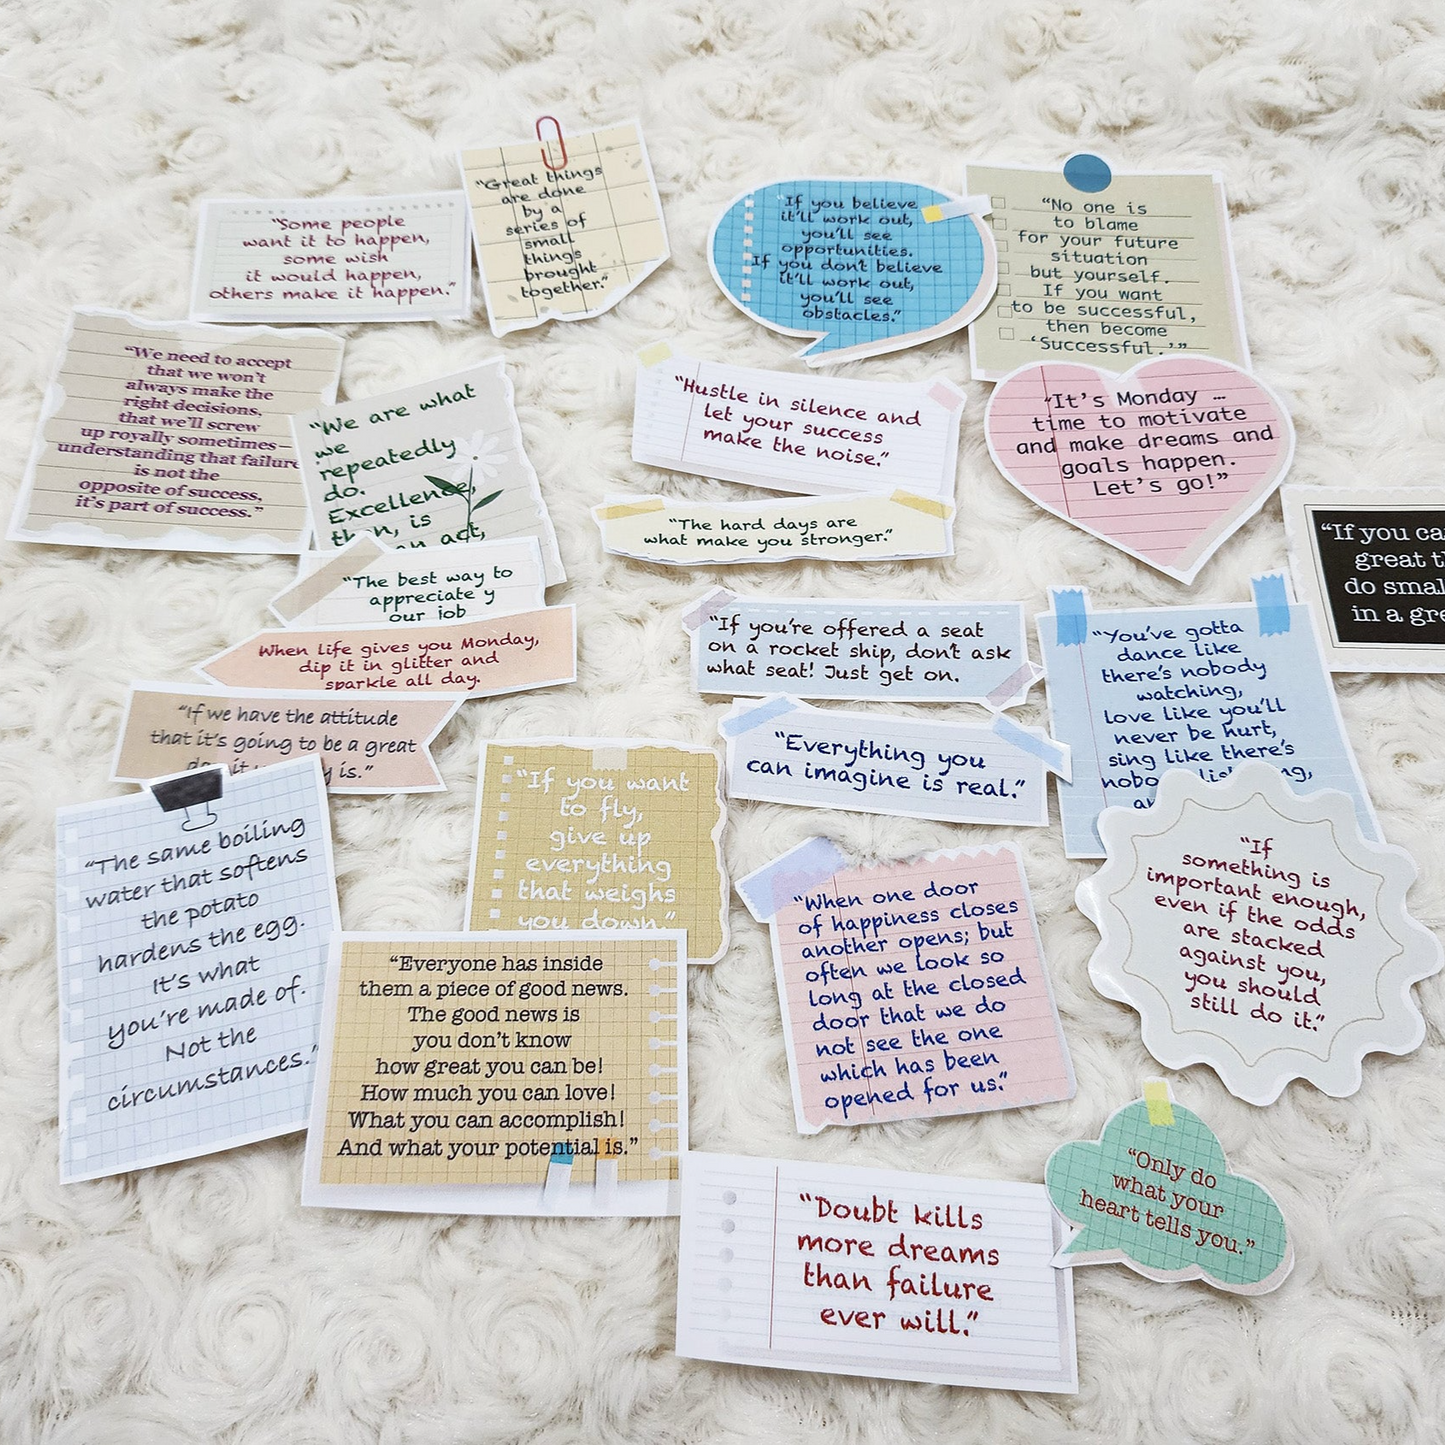 “Some people
want it to happen,
some wish
it would happen,
others make it happen.”
“Great things
are done
by a
series of
small
things
brought
together.”
“If you believe
it’ll work out,
you’ll see
opportunities.
If you don’t believe
it’ll work out,
you’ll see
obstacles.”
“No one is
to blame
for your future
situation
but yourself.
If you want
to be successful,
then become
‘Successful.’”
“We need to accept
that we won’t
always make the
right decisions,
that we’ll screw
up royally sometimes—
understanding that failure
is not the
opposite of success,
it’s part of success.”
“We are what
we
repeatedly
do.
Excellence,
then, is
an act,
“Hustle in silence and
let your success
make the noise.”
“It’s Monday …
time to motivate
and make dreams and
goals happen.
Let’s go!”
“The hard days are
what make you stronger.”
“If you ca
great th
do smal
in a gre
“The best way to
appreciate y
our job
When life gives you Monday,
dip it in glitter and
sparkle all day.
“If we have the attitude
that it’s going to be a great
is.”
“If you’re offered a seat
on a rocket ship, don’t ask
what seat! Just get on.
“You’ve gotta
dance like
there’s nobody
watching,
love like you’ll
never be hurt,
sing like there’s
“Everything you
can imagine is real.”
“If you want
to fly,
give up
everything
that weighs
you down.”
“The same boiling
water that softens
the potato
hardens the egg.
It’s what
you’re made of.
Not the
circumstances.”
“Everyone has inside
them a piece of good news.
The good news is
you don’t know
how great you can be!
How much you can love!
What you can accomplish!
And what your potential is.”
“When one door
of happiness closes
another opens; but
often we look so
long at the closed
door that we do
not see the one
which has been
opened for us.”
“If
something is
important enough,
even if the odds
are stacked
against you,
you should
still do it.”
“Only do
what your
heart tells you.”
“Doubt kills
more dreams
than failure
ever will.”